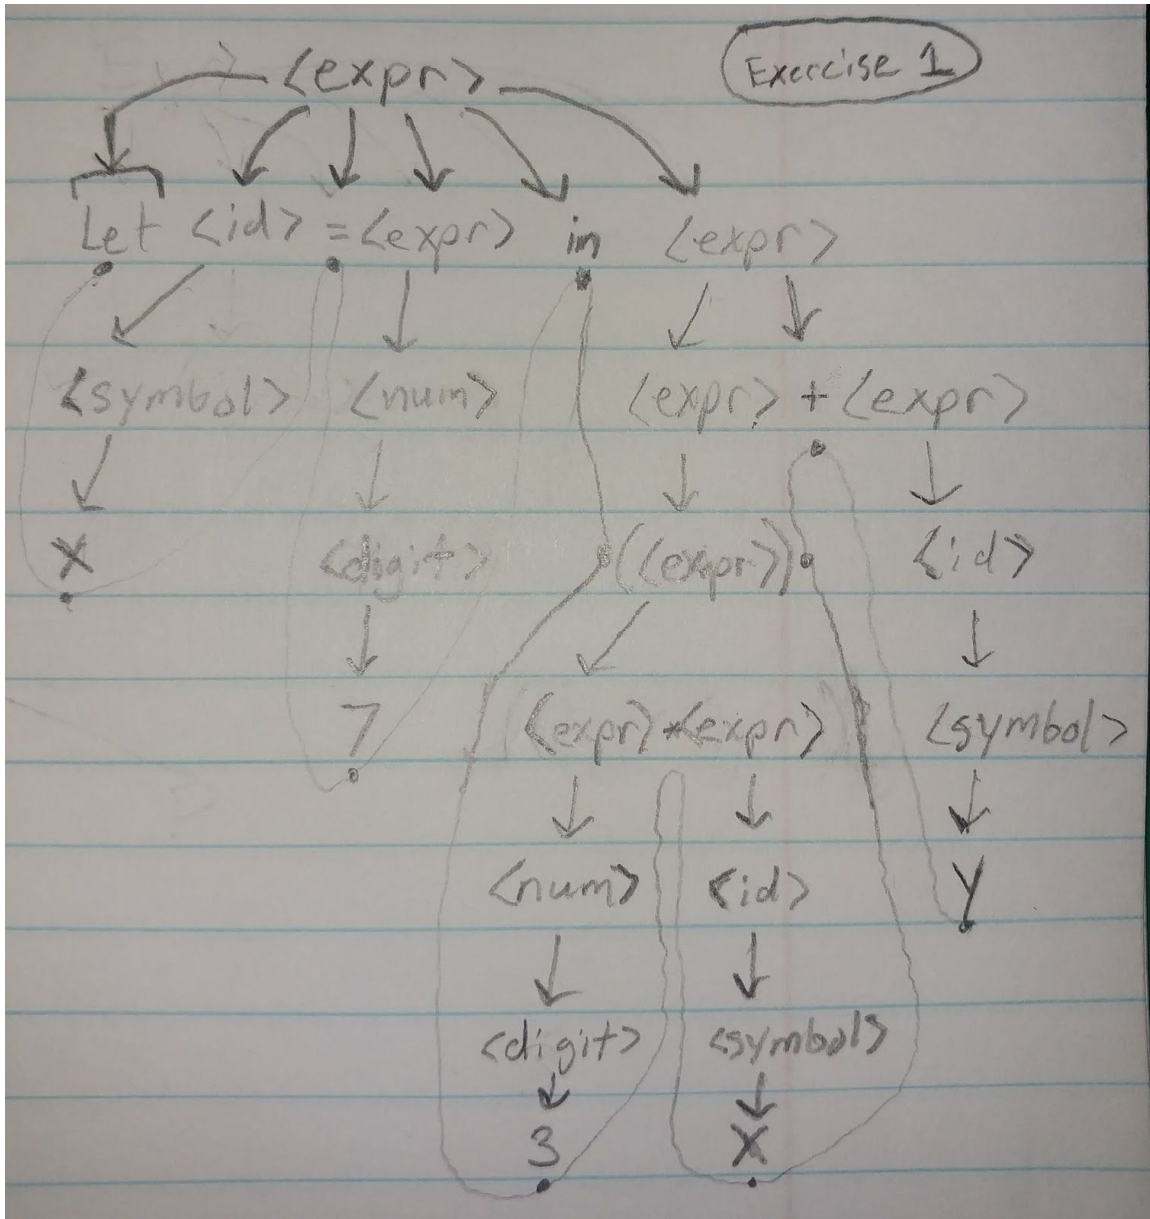 <expr> Exercise 1
Let <id> = <expr> in <expr>
<symbol> <num> <expr> + <expr>
X <digit> (<expr>) <id>
7 <expr> * <expr> <symbol>
<num> <id> Y
<digit> <symbol>
3 X